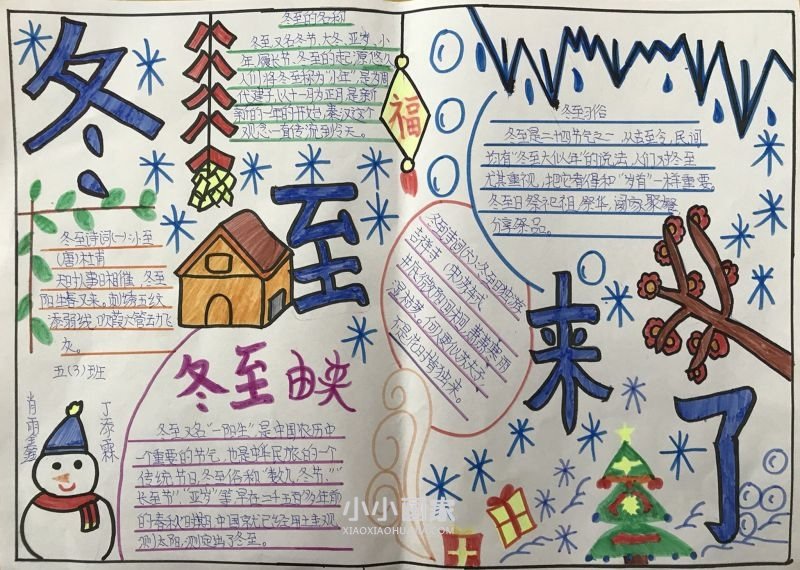 冬至来了
冬至的名称
冬至又名冬节、大冬、亚岁、小
年、履长节,冬至的起源悠久
人们将冬至称为"小年"是为周
代建子,以十一月为正月,是新
新的一年的开始,秦汉这个
观念一直传流到今天。
福
冬至习俗
冬至是二十四节气之一,从古至今,民间
均有"冬至大似年"的说法,人们对冬至
尤其重视,把它看得和"岁首"一样重要
冬至日祭祀祖
分享祭品。
冬至诗词(一):小至
(唐)杜甫
天时人事日相催,冬至
阳生春又来。刺绣五纹
添弱线,吹葭六管动飞
灰。
五(3)班
肖雨鑫
丁添霖
吉祥寺
冬至由来
冬至又名"一阳生",是中国农历中
一个重要的节气,也是中华民族的一个
传统节日,冬至俗称"数九、冬节、"
长至节""亚岁"等,早在二千五百多年前
的春秋时期,中国就已经用土圭观
测太阳,测定出了冬至。
小小画家
XIAOXIAOHUAJIA.COM